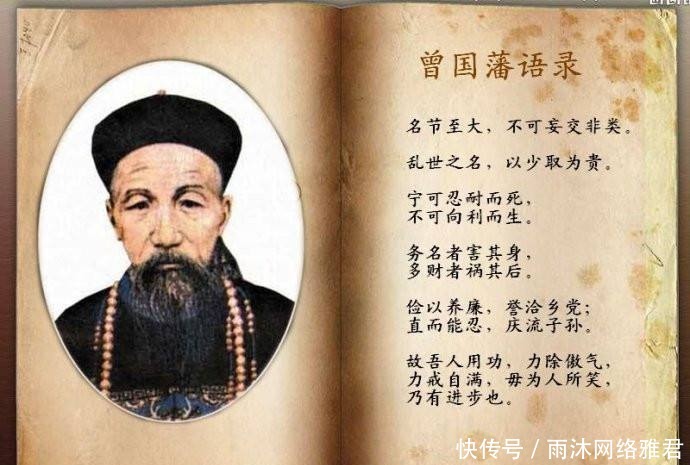 曾国藩语录
名节至大，不可妄交非类。
乱世之名，以少取为贵。
宁可忍耐而死，
不可向利而生。
务名者害其身，
多财者祸其后。
俭以养廉，誉洽乡党；
直而能忍，庆流子孙。
故吾人用功，力除傲气，
力戒自满，毋为人所笑，
乃有进步也。
快传号／雨沐网络雅君